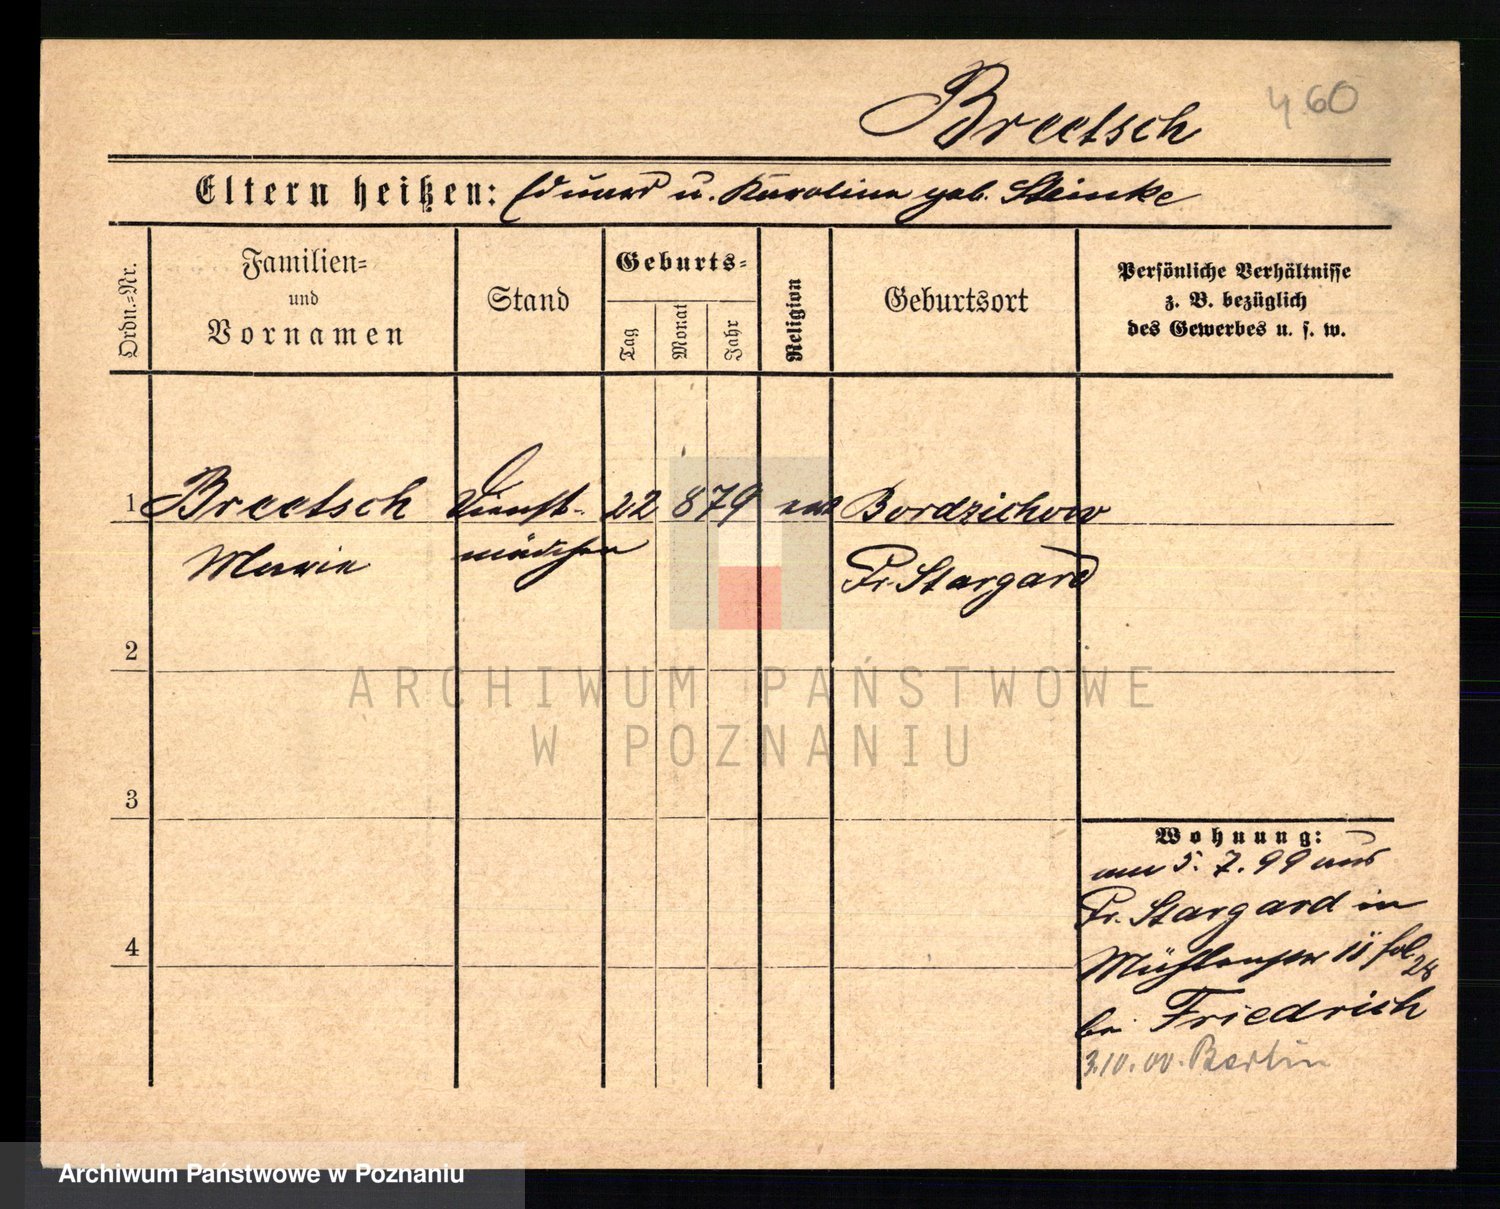 Breetsch
460
Eltern heißen: Eduard u. Karolina geb. Steinke
Ordn.=Nr.
Familien=
und
Vornamen
Stand
Geburts=
Tag
Monat
Jahr
Religion
Geburtsort
Persönliche Verhältnisse
z. B. bezüglich
des Gewerbes u. s. w.
1 Breetsch Dienst- 22 8 79 ev Bordzichow
Marie mädchen Pr. Stargard
2
ARCHIWUM PAŃSTWOWE
W POZNANIU
3
Wohnung:
am 5. 7. 99 aus
Pr. Stargard in
4
Mühlenstr 11 fol 28
bei Friedrich
3.10.00. Berlin
Archiwum Państwowe w Poznaniu